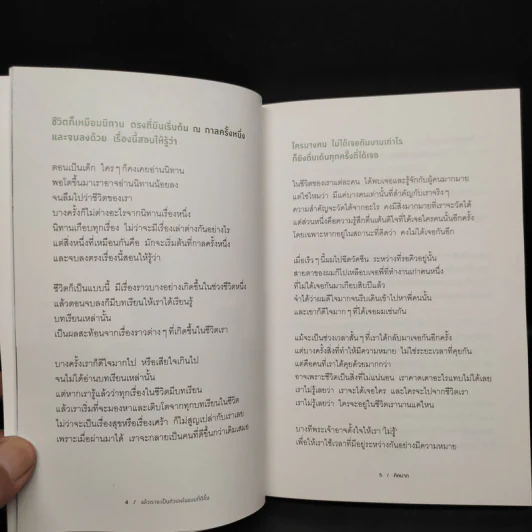 ชีวิตก็เหมือนนิทาน ตรงที่มันเริ่มต้น ณ กาลครั้งหนึ่ง
และจบลงด้วย เรื่องนี้สอนให้รู้ว่า
ตอนเป็นเด็ก ใครๆ ก็คงเคยอ่านนิทาน
พอโตขึ้นมาเราอาจอ่านนิทานน้อยลง
จนลืมไปว่าชีวิตของเรา
บางครั้งก็ไม่ต่างอะไรจากนิทานเรื่องหนึ่ง
นิทานเกือบทุกเรื่อง ไม่ว่าจะมีเรื่องเล่าต่างกันอย่างไร
แต่สิ่งหนึ่งที่เหมือนกันคือ มักจะเริ่มต้นที่กาลครั้งหนึ่ง
และจบลงตรงเรื่องนี้สอนให้รู้ว่า
ชีวิตก็เป็นแบบนี้ มีเรื่องราวบางอย่างเกิดขึ้นในช่วงชีวิตหนึ่ง
แล้วตอนจบลงก็มีบทเรียนให้เราได้เรียนรู้
บทเรียนเหล่านั้น
เป็นผลสะท้อนจากเรื่องราวต่างๆ ที่เกิดขึ้นในชีวิตเรา
บางครั้งเราก็ดีใจมากไป หรือเสียใจเกินไป
จนไม่ได้อ่านบทเรียนเหล่านั้น
แต่หากเรารู้แล้วว่าทุกเรื่องในชีวิตมีบทเรียน
แล้วเราเริ่มที่จะมองหาและเติบโตจากทุกบทเรียนในชีวิต
ไม่ว่าจะเป็นเรื่องสุขหรือเรื่องเศร้า ก็ไม่สูญเปล่ากับเราเลย
เพราะเมื่อผ่านมาได้ เราจะกลายเป็นคนที่ดีขึ้นกว่าเดิมเสมอ
4 /
ใครบางคน ไม่ได้เจอกันนานเท่าไร
ก็ยังตื่นเต้นทุกครั้งที่ได้เจอ
ในชีวิตของเราแต่ละคน ได้พบเจอและรู้จักกับผู้คนมากมาย
แต่ใช่ไหมว่า มีแค่บางคนเท่านั้นที่สำคัญกับเราจริงๆ
ความสำคัญจะวัดได้จากอะไร คงมีสิ่งมากมายที่เราจะวัดได้
แต่ส่วนหนึ่งคือความรู้สึกตื่นเต้นดีใจที่ได้เจอใครคนนั้นอีกครั้ง
โดยเฉพาะหากอยู่ในสถานะที่คิดว่า คงไม่ได้เจอกันอีก
เมื่อเร็วๆ นี้ผมไปฉีดวัคซีน ระหว่างที่รอคิวอยู่นั้น
สายตาของผมก็ไปเหลือบเจอพี่ที่ทำงานเก่าคนหนึ่ง
ที่ไม่ได้เจอกันมาเกือบสิบปีแล้ว
จำได้ว่าผมดีใจมากจนรีบเดินเข้าไปหาพี่คนนั้น
และเขาก็ดีใจมากๆ ที่ได้เจอผมเช่นกัน
แม้จะเป็นช่วงเวลาสั้นๆ ที่เราได้กลับมาเจอกันอีกครั้ง
แต่บางครั้งสิ่งที่ทำให้มีความหมาย ไม่ใช่ระยะเวลาที่คุยกัน
แต่คือคนที่เราได้คุยด้วยมากกว่า
อาจเพราะชีวิตเป็นสิ่งที่ไม่แน่นอน เราคาดเดาอะไรแทบไม่ได้เลย
เราไม่รู้เลยว่า เราจะได้เจอใคร และใครจะไปจากชีวิตเรา
เราไม่รู้เลยว่า ใครจะอยู่ในชีวิตเรานานแค่ไหน
บางทีพระเจ้าอาจตั้งใจให้เรา 'ไม่รู้'
เพื่อให้เราใช้เวลาที่มีอยู่ระหว่างกันอย่างมีความหมาย
5 / คิดมาก